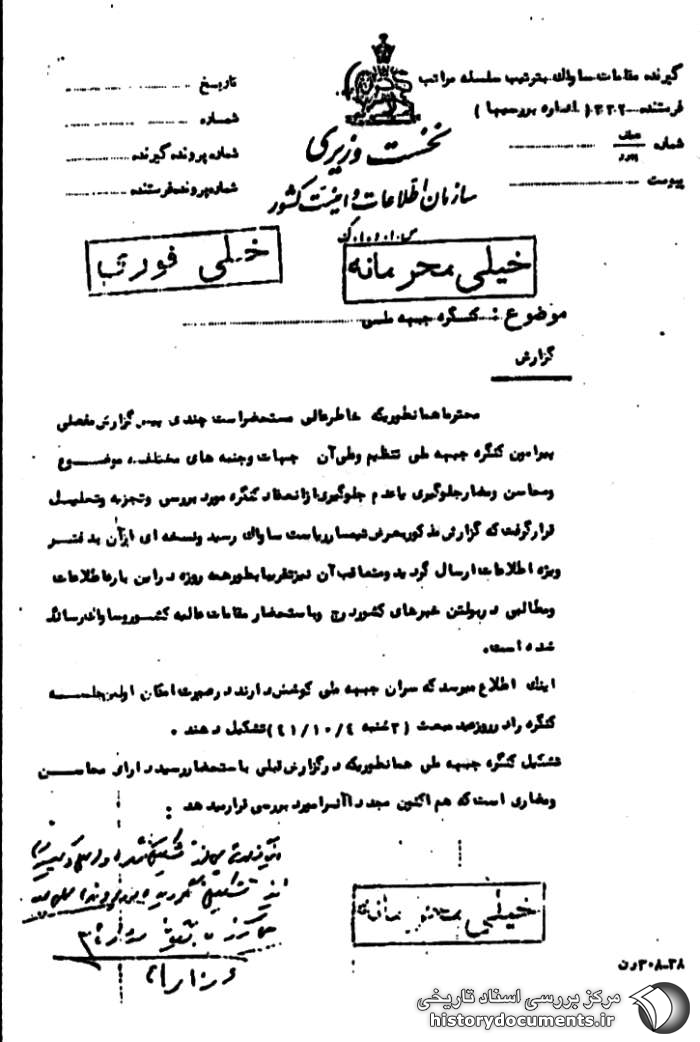 گیرنده مقامات ساواک بترتیب سلسله مراتب
فرستنده ۳۳۰۲ (اداره بررسیها)
شماره
پیوست
تاریخ
شماره
شماره پرونده گیرنده
شماره پرونده فرستنده
نخست وزیری
سازمان اطلاعات و امنیت کشور
س.ا.و.ا.ک
خیلی محرمانه
خیلی فوری
موضوع : کنگره جبهه ملی
گزارش
محترما همانطوریکه خاطرعالی مستحضراست چندی پیش گزارش مفصلی
پیرامون کنگره جبهه ملی تنظیم وطی آن جهات وجنبه های مختلف موضوع
ومحاسن ومضارجلوگیری یاعدم جلوگیری ازانعقاد کنگره مورد بررسی وتجزیه وتحلیل
قرارگرفت که گزارش مذکوربعرض تیمسارریاست ساواک رسید ونسخه ای ازآن بدفتر
ویژه اطلاعات ارسال گردید ومتعاقب آن نیزتقریبا بطورهمه روزه دراین باره اطلاعات
ومطالبی دربولتن خبرهای کشوردرج وباستحضار مقامات عالیه کشوروساواک رسانده
شده است.
اینک اطلاع میرسد که سران جبهه ملی کوشش دارند درصورت امکان اولین جلسه
کنگره رادرروزعید مبعث (۳شنبه ۴/۱۰/۴۱) تشکیل دهند .
تشکیل کنگره جبهه ملی همانطوریکه درگزارش قبلی باستحضاررسید دارای محاسن
ومضاری است که هم اکنون مجدداآنرامورد بررسی قرارمیدهد :
خیلی محرمانه
۳۰۸-۳۸ رن
مرکز بررسی اسناد تاریخی
historydocuments.ir